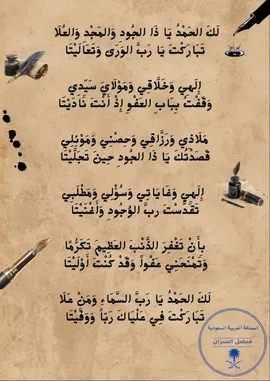 لَكَ الحَمْدُ يَا ذَا الجُودِ وَالمَجْدِ وَالعُلَا
تَبَارَكْتَ يَا رَبَّ الوَرَى وَتَعَالَيْتَا
إِلَهِي وَخَلَّاقِي وَمَوْلَايَ سَيِّدِي
وَقَفْتُ بِبَابِ العَفْوِ إِذْ أَنْتَ نَادَيْتَا
مَلَاذِي وَرَزَّاقِي وَحِصْنِي وَمَوْئِلِي
قَصَدْتُكَ يَا ذَا الجُودِ حِينَ تَجَلَّيْتَا
إِلَهِي وَغَايَاتِي وَسُؤْلِي وَمَطْلَبِي
تَقَدَّسْتَ رَبَّ الوُجُودِ وَأَغْنَيْتَا
بِأَنْ تَغْفِرَ الذَّنْبَ العَظِيمَ تَكَرُّمًا
وَتَمْنَحَنِي عَفْواً وَقَدْ كُنْتَ أَوْلَيْتَا
لَكَ الحَمْدُ يَا رَبَّ السَّمَاءِ وَمَنْ عَلَا
تَبَارَكْتَ فِي عَلْيَاكَ رَبّاً وَوَفَّيْتَا
المملكة العربية السعودية
فيصل السران